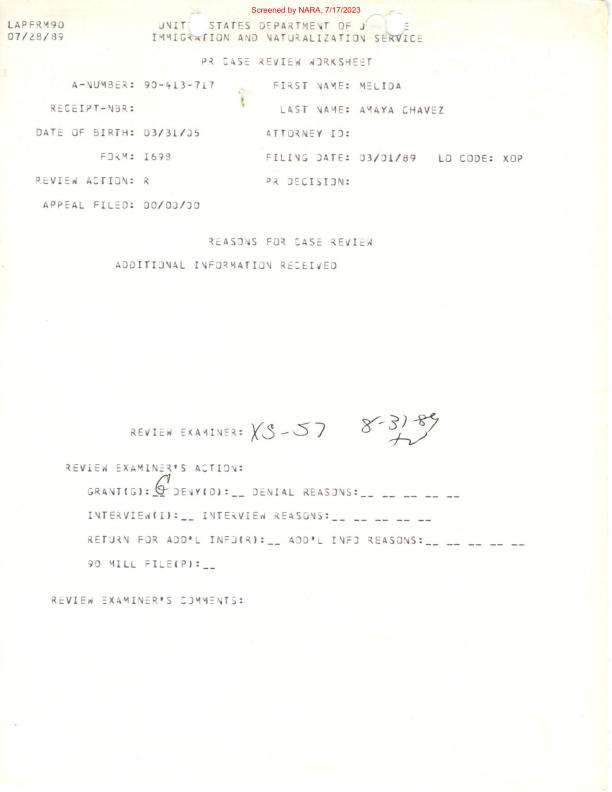 Screened by NARA, 7/17/2023
LAPFRM90 UNIT STATES DEPARTMENT OF J E
07/28/89 IMMIGRATION AND NATURALIZATION SERVICE
PR CASE REVIEW WORKSHEET
A-NUMBER: 90-413-717 FIRST NAME: MELIDA
RECEIPT-NBR: LAST NAME: AMAYA CHAVEZ
DATE OF BIRTH: 03/31/05 ATTORNEY ID:
FORM: I698 FILING DATE: 03/01/89 LO CODE: XOP
REVIEW ACTION: R PR DECISION:
APPEAL FILED: 00/00/00
REASONS FOR CASE REVIEW
ADDITIONAL INFORMATION RECEIVED
REVIEW EXAMINER: XS-57 8-31-89
REVIEW EXAMINER*S ACTION:
GRANT(G): G DENY(D):__ DENIAL REASONS:__ __ __ __ __
INTERVIEW(I):__ INTERVIEW REASONS:__ __ __ __ __
RETURN FOR ADD*L INFO(R):__ ADD*L INFO REASONS:__ __ __ __ __
90 MILL FILE(P):__
REVIEW EXAMINER*S COMMENTS: